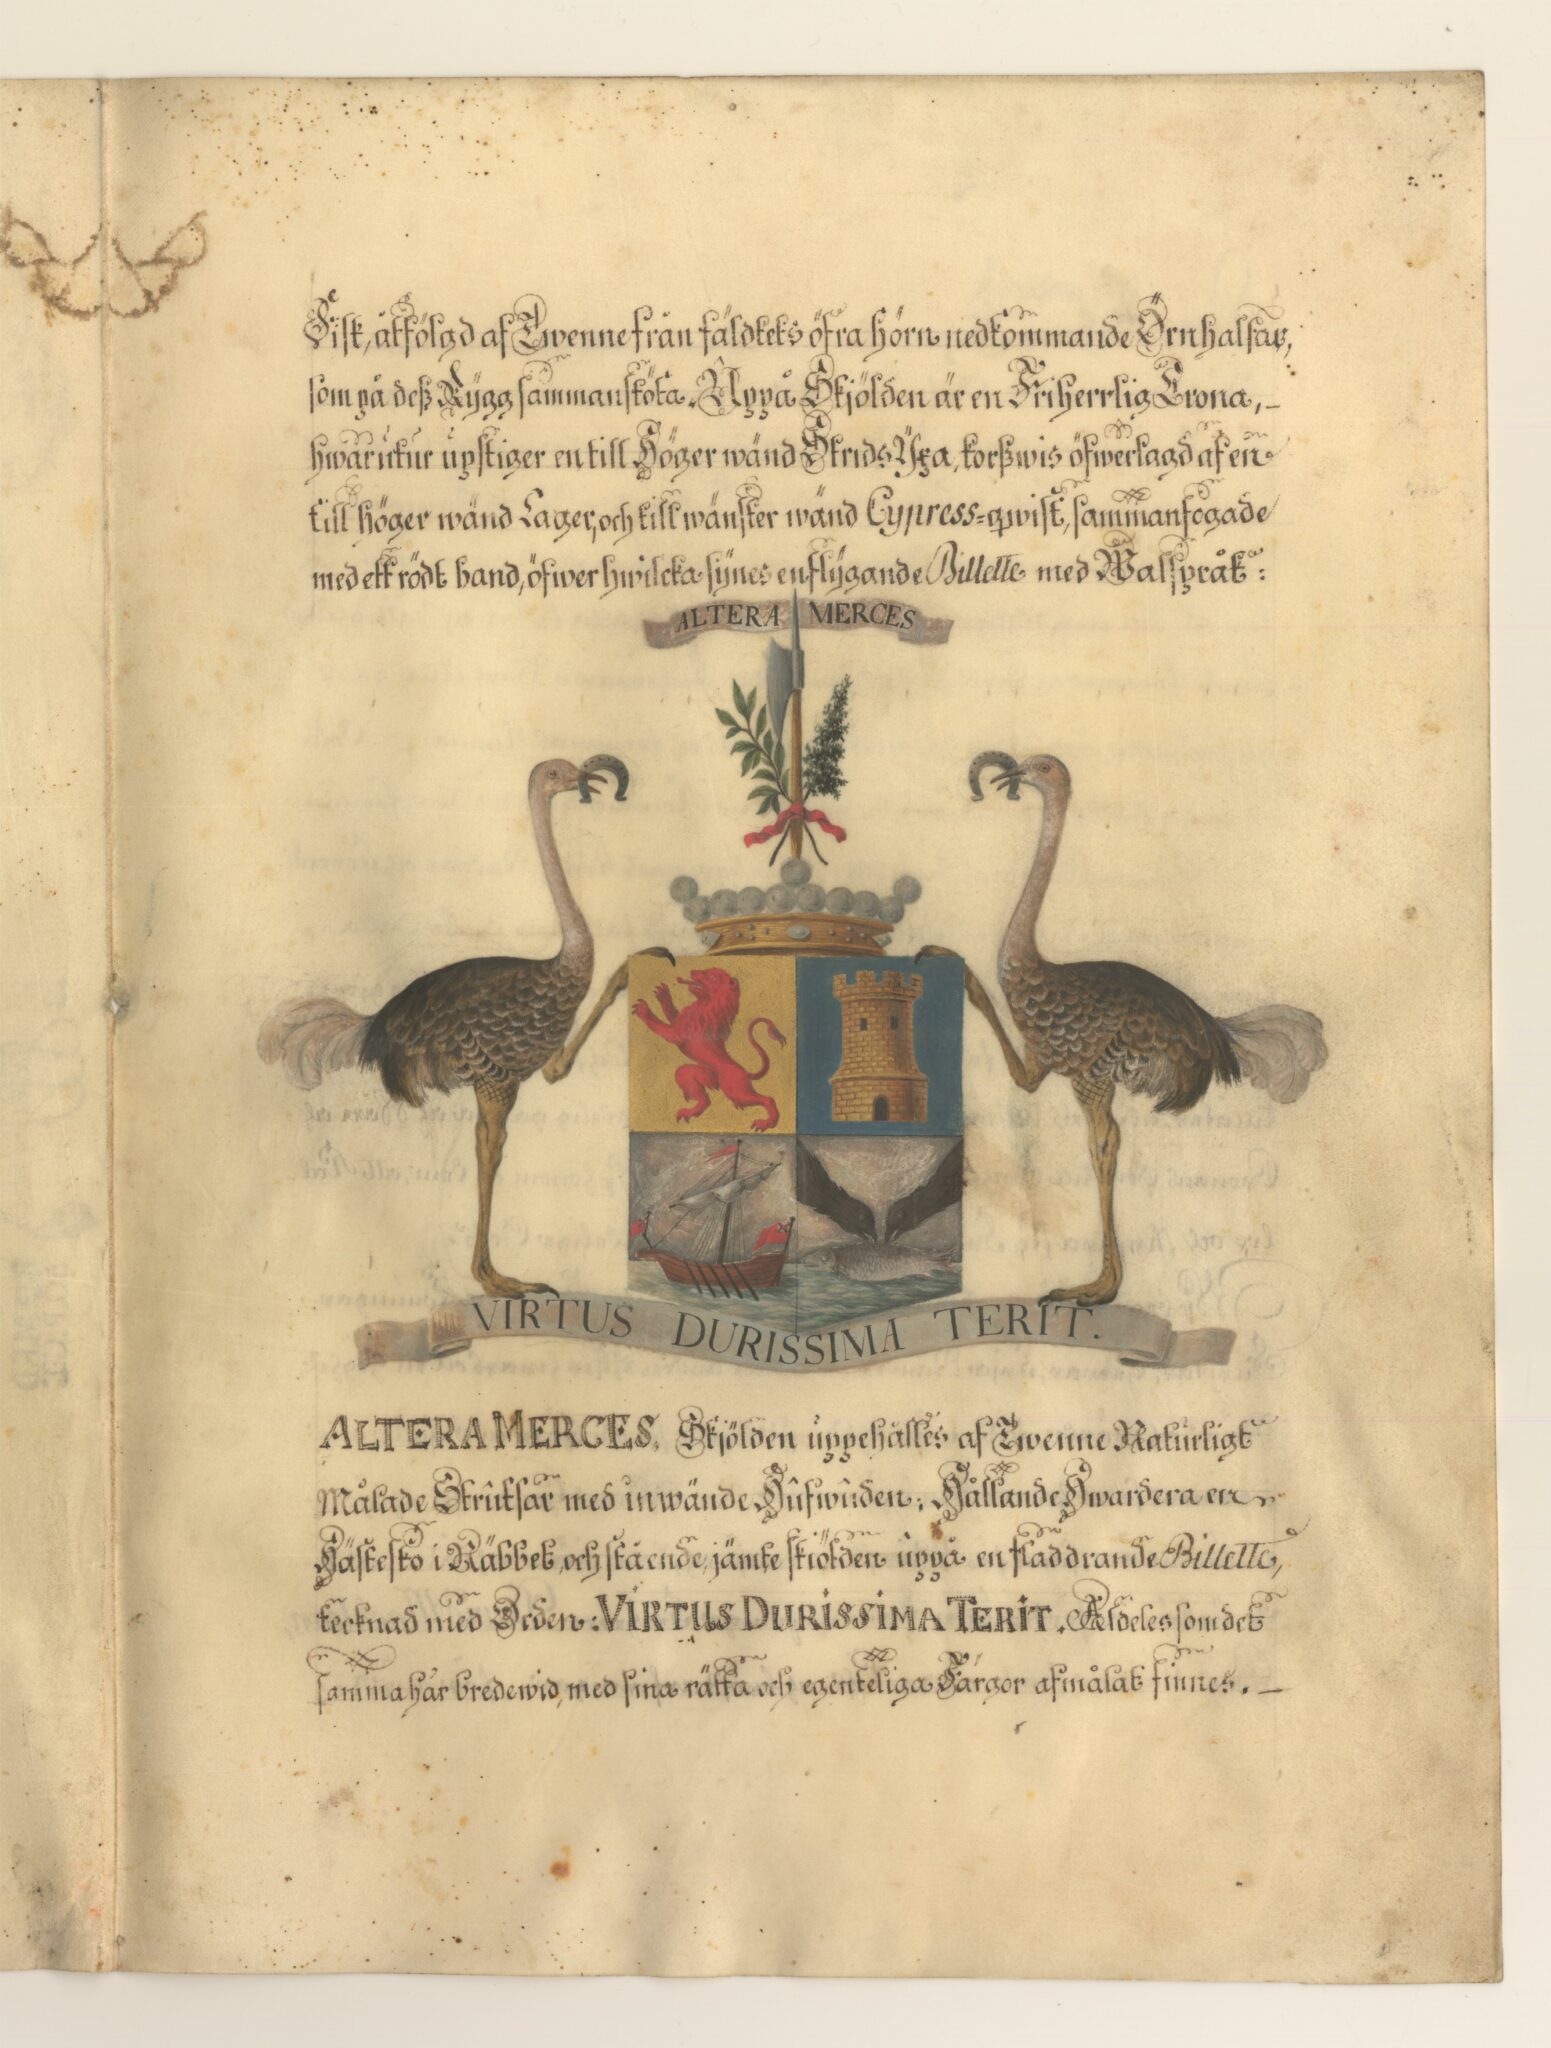 Fisk, åtfölgd af Twenne från fäldtets öfra hörn nedkommande Örnhalsar,
som på deß Rygg sammanstöta. Uppå Skjölden är en Friherrlig Crona, –
hwarutur upstiger en till Höger wänd Strids Yxa, korßwis öfwerlagd af en
till höger wänd Lager, och till wänster wänd Cypress=qwist, sammanfogade
med ett rödt band, öfwer hwilcka synes en flygande Billette med Walspråk:
ALTERA MERCES
VIRTUS DURISSIMA TERIT.
ALTERA MERCES. Skjölden uppehålles af Twenne Naturligt
Målade Strutsar med inwände Hufwuden; Hållande Hwardera en
Hästesko i Näbbet, och stående, jämte skiölden uppå en fladdrande Billette,
tecknad med Orden: VIRTUS DURISSIMA TERIT. Aldeles som det
samma här bredewid, med sina rätta och egenteliga Färgor afmålat finnes. –